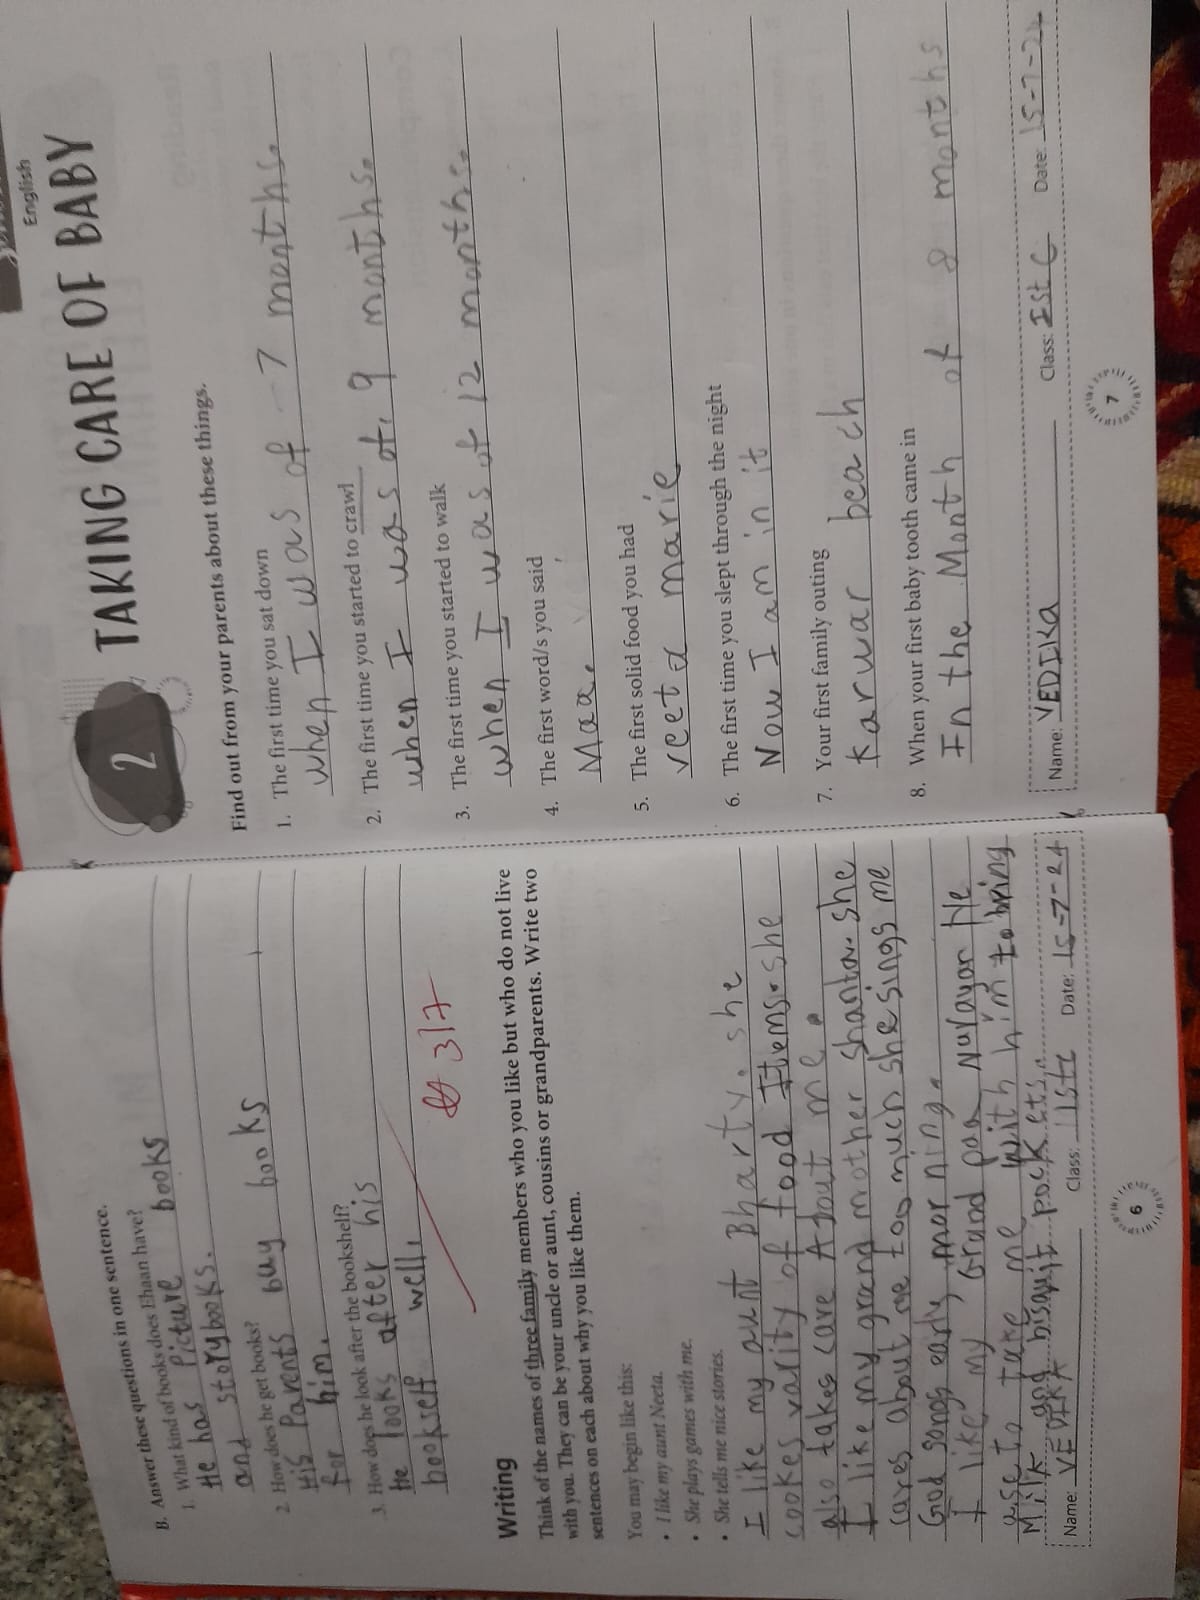 B. Answer these questions in one sentence.
1. What kind of books does Ehaan have?
He has Picture books
and storybooks.
2. How does he get books?
His Parents buy books
for him.
3. How does he look after the bookshelf?
He looks after his
bookself well.
317
Writing
Think of the names of three family members who you like but who do not live
with you. They can be your uncle or aunt, cousins or grandparents. Write two
sentences on each about why you like them.
You may begin like this:
• I like my aunt Neeta.
• She plays games with me.
• She tells me nice stories.
I like my aunt Bharty. she
cookes varity of food Items. she
also takes care About me.
I like my grand mother shanta. she
cares about me too much she sings me
God songs early morning.
I like my Grand paa Narayan He
use to take me with him to bring
Milk and bisquit pockets.
Name: VEDIKA Class: Istc Date: 15-7-24
6
English
2 TAKING CARE OF BABY
Find out from your parents about these things.
1. The first time you sat down
when I was of 7 months.
2. The first time you started to crawl
when I was of 9 months.
3. The first time you started to walk
when I was of 12 months.
4. The first word/s you said
Maa.
5. The first solid food you had
veeta marie
6. The first time you slept through the night
Now I am in it
7. Your first family outing
Karwar beach
8. When your first baby tooth came in
In the Month of 8 months
Name: VEDIKA Class: Ist C Date: 15-7-24
7